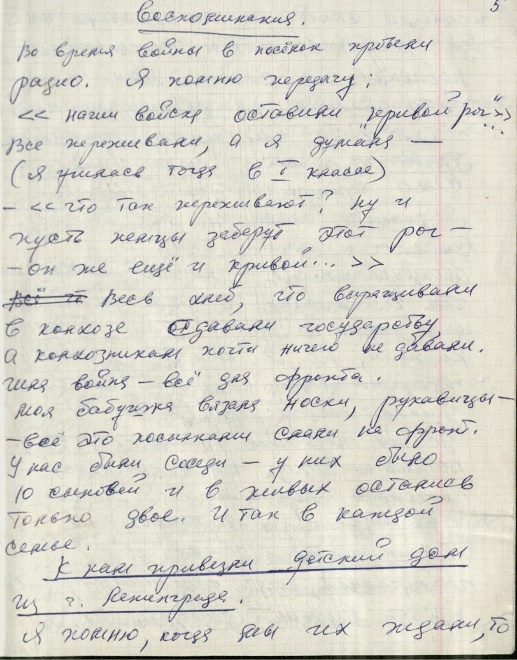 5
Воспоминания.
Во время войны в посёлок провели
радио. Я помню передачу:
<< наши войска оставили "кривой рог">>
Все переживали, а я думала —
(я училась тогда в I классе)
- << что так переживают? ну и
пусть немцы заберут этот рог —
- он же ещё и кривой... >>
Весь хлеб, что выращивали
в колхозе отдавали государству,
а колхозникам почти ничего не давали.
шла война — всё для фронта.
моя бабушка вязала носки, рукавицы —
- всё это посылками слали на фронт.
У нас были соседи — у них было
10 сыновей и в живых остались
только двое. И так в каждой
семье.
К нам привезли детский дом
из г. Ленинграда.
Я помню, когда мы их ждали, то